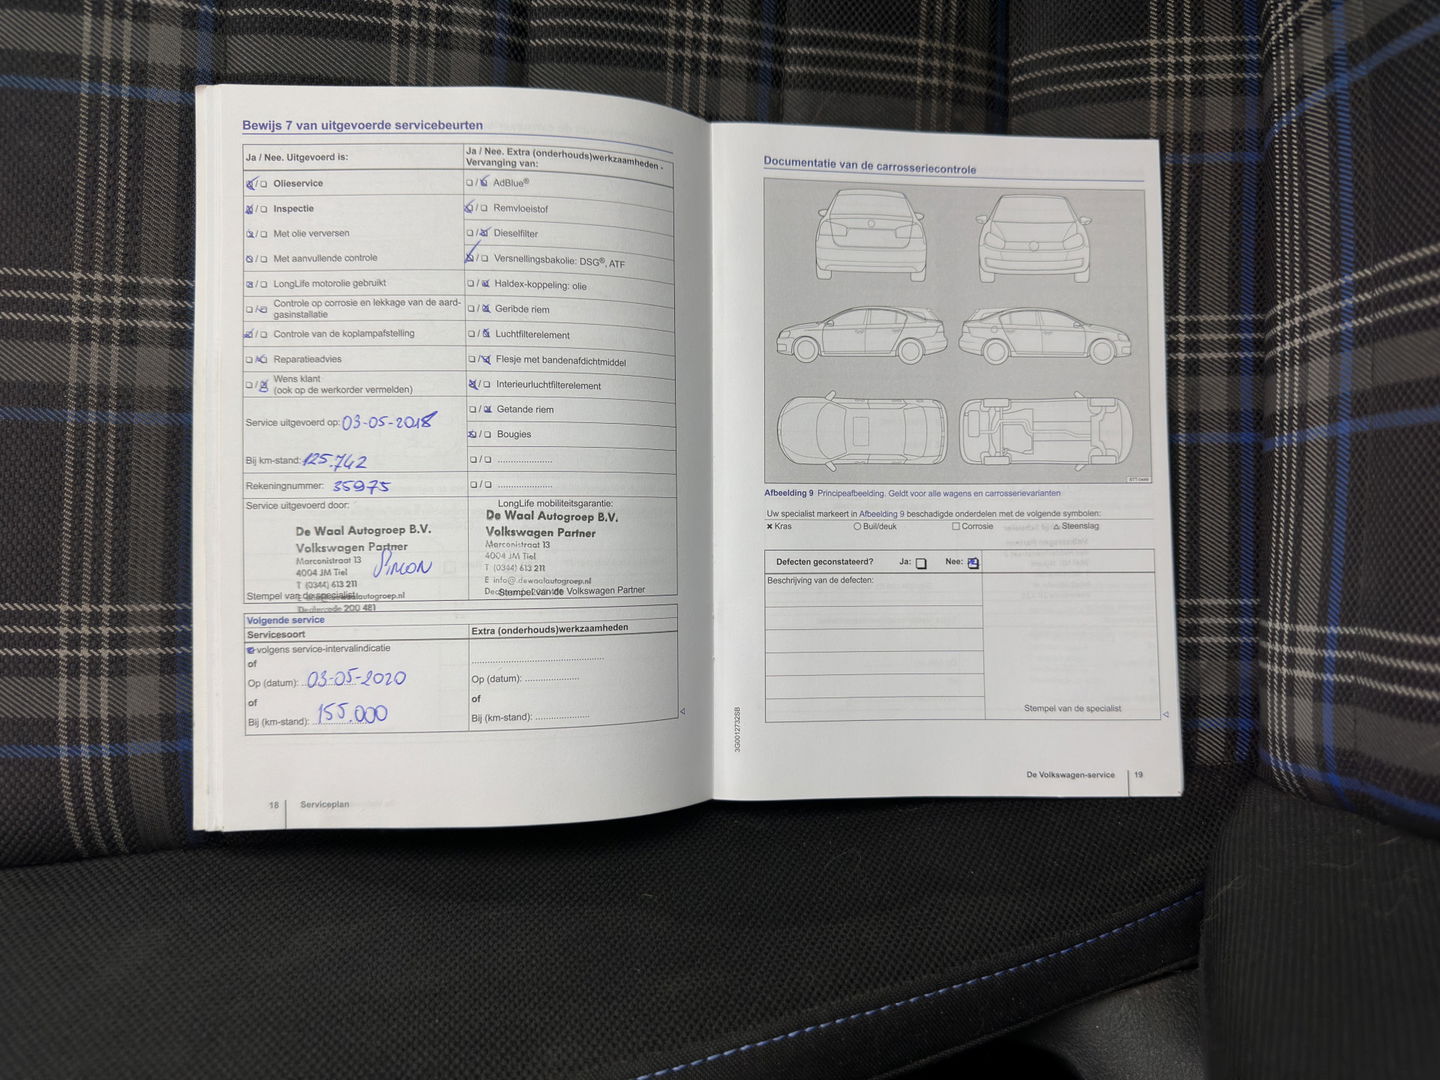 Bewijs 7 van uitgevoerde servicebeurten
Ja / Nee. Uitgevoerd is:
Ja / Nee. Extra (onderhouds)werkzaamheden -
Vervanging van:
Olieservice
Inspectie
Met olie verversen
Met aanvullende controle
LongLife motorolie gebruikt
Controle op corrosie en lekkage van de aard-
gasinstallatie
Controle van de koplampafstelling
Reparatieadvies
Wens klant
(ook op de werkorder vermelden)
AdBlue®
Remvloeistof
Dieselfilter
Versnellingsbakolie: DSG®, ATF
Haldex-koppeling: olie
Geribde riem
Luchtfilterelement
Flesje met bandenafdichtmiddel
Interieurluchtfilterelement
Getande riem
Bougies
Service uitgevoerd op: 03-05-2018
Bij km-stand: 125.742
Rekeningnummer: 35975
Service uitgevoerd door:
De Waal Autogroep B.V.
Volkswagen Partner
Marconistraat 13
4004 JM Tiel
T (0344) 613 211
Stempel van de specialist
Dealercode 200 481
Simon
LongLife mobiliteitsgarantie:
De Waal Autogroep B.V.
Volkswagen Partner
Marconistraat 13
4004 JM Tiel
T (0344) 613 211
E info@dewaalautogroep.nl
Stempel van de Volkswagen Partner
Volgende service
Servicesoort
volgens service-intervalindicatie
of
Op (datum): 03-05-2020
of
Bij (km-stand): 155.000
Extra (onderhouds)werkzaamheden
Op (datum):
of
Bij (km-stand):
18 Serviceplan
Documentatie van de carrosseriecontrole
Afbeelding 9 Principeafbeelding. Geldt voor alle wagens en carrosserievarianten
Uw specialist markeert in Afbeelding 9 beschadigde onderdelen met de volgende symbolen:
Kras Buil/deuk Corrosie Steenslag
Defecten geconstateerd? Ja: Nee:
Beschrijving van de defecten:
Stempel van de specialist
3G0012732SB
De Volkswagen-service 19